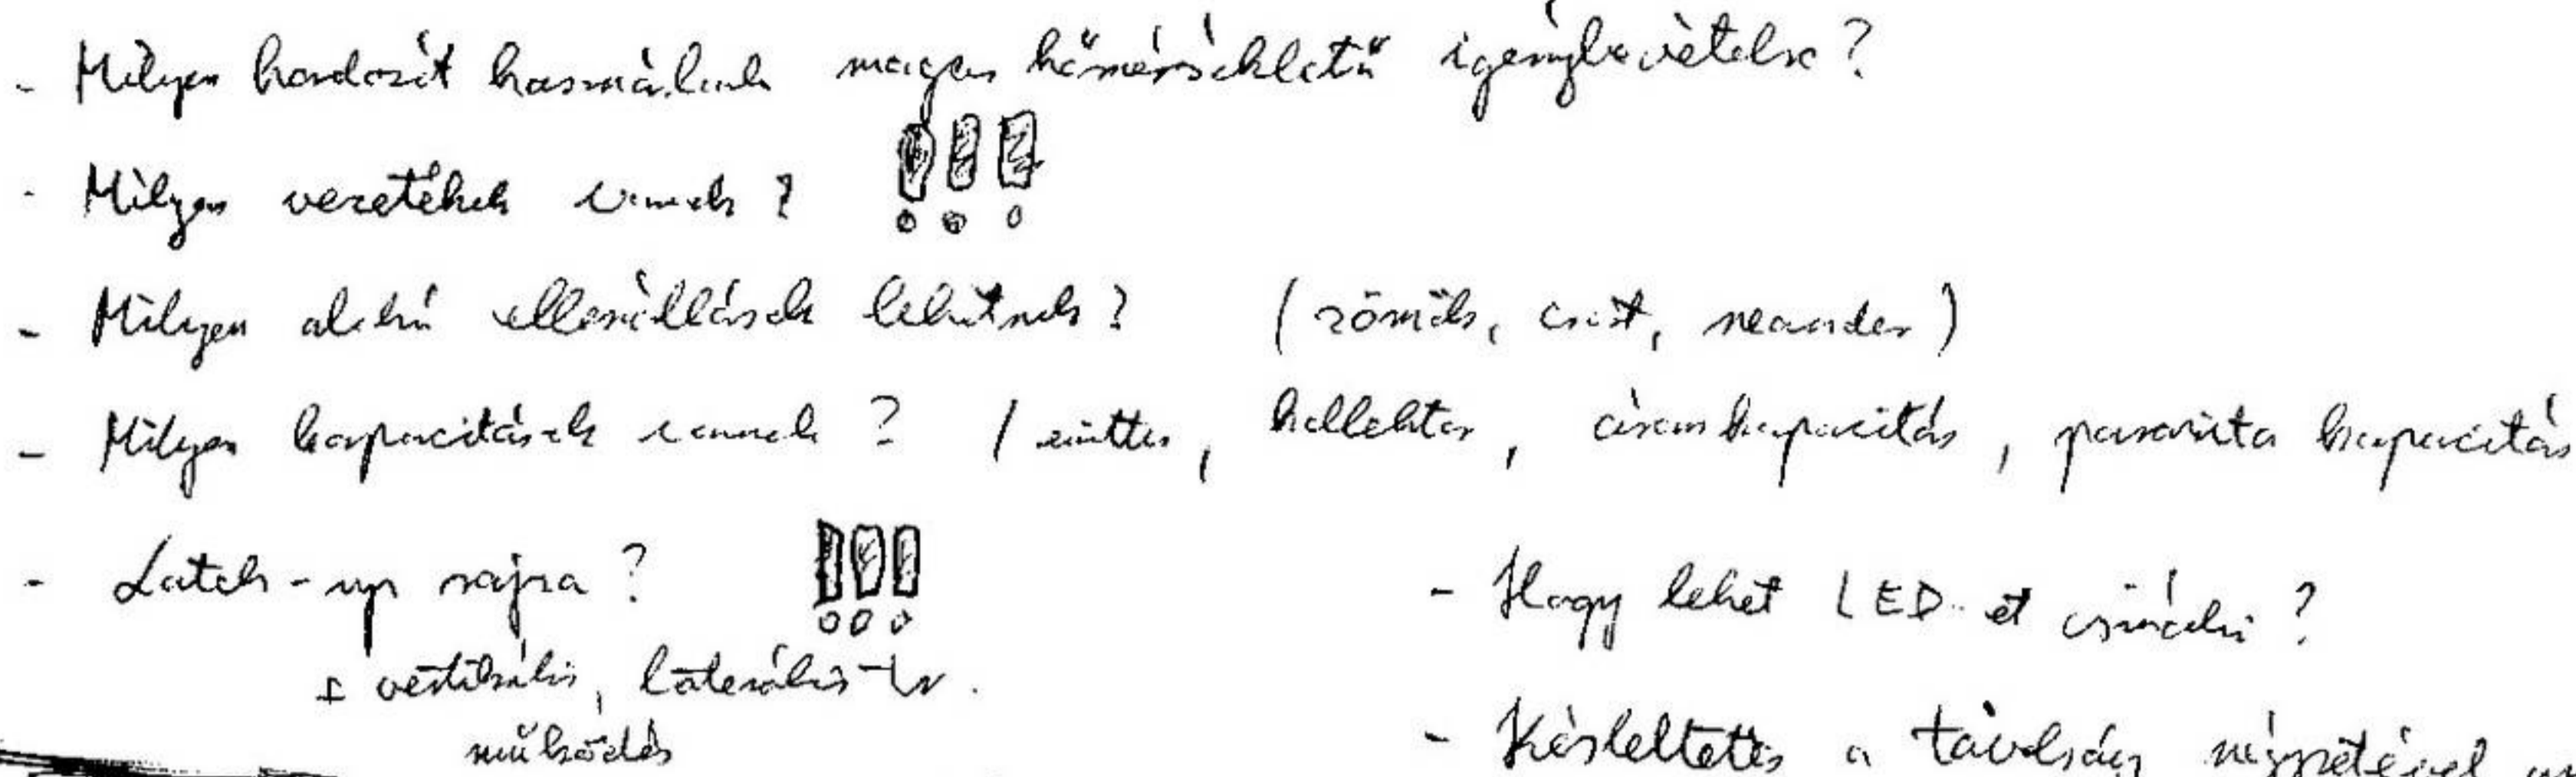 - Milyen hordozót használunk magas hőmérsékletű igénybevételre?
- Milyen vezetékek vannak? !!!
- Milyen alakú ellenállások lehetnek? (zömök, csíst, meander)
- Milyen kapacitások vannak? (emitter, kollektor, áramkapacitás, parazita kapacitás
- Latch-up rajza? !!!
+ vertikális, laterális tr.
működés
- Hogy lehet LED-et csinálni?
- Késleltetés a távolság négyzetével